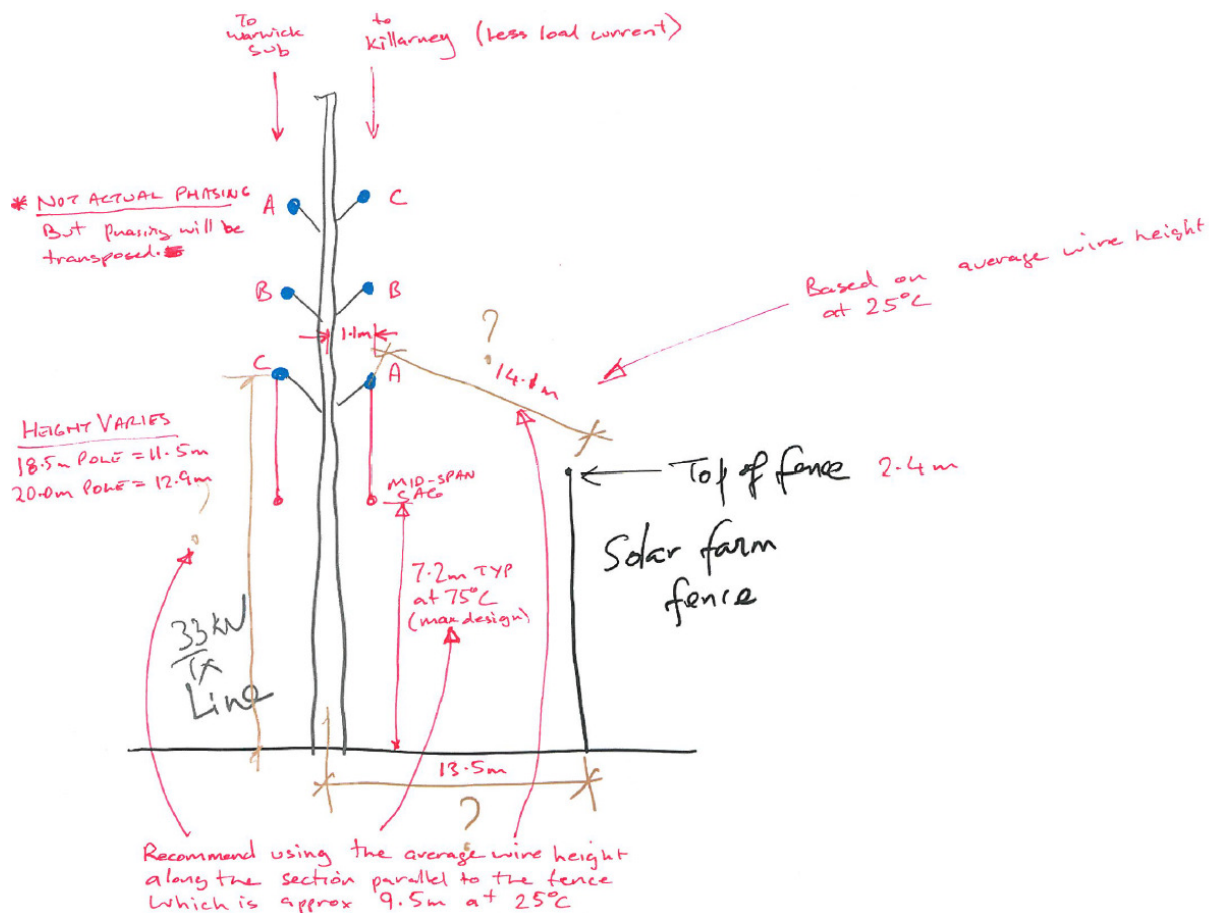 To
Warwick
sub
to
Killarney (Less load current)
* NOT ACTUAL PHASING
But phasing will be
transposed.
A
C
B
B
1.1m
C
A
?
14.1m
Based on average wire height
at 25°C
HEIGHT VARIES
18.5m POLE = 11.5m
20.0m POLE = 12.9m
?
MID-SPAN
SAG
Top of fence 2.4m
Solar farm
fence
7.2m TYP
at 75°C
(max design)
33kV
Tx
Line
13.5m
?
Recommend using the average wire height
along the section parallel to the fence
which is approx 9.5m at 25°C